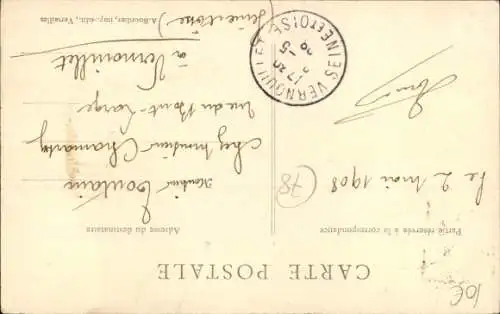 CARTE POSTALE
Partie réservée à la correspondance
Adresse du destinataire
Le 2 mai 1908
Monsieur Toutain
chez monsieur Chamarty
rue du Pont-Large
à Vernouillet
(Seine et Oise)
VERNOUILLET
SEINE ET OISE
A. Bourdier, imp.-édit., Versailles
78
10€